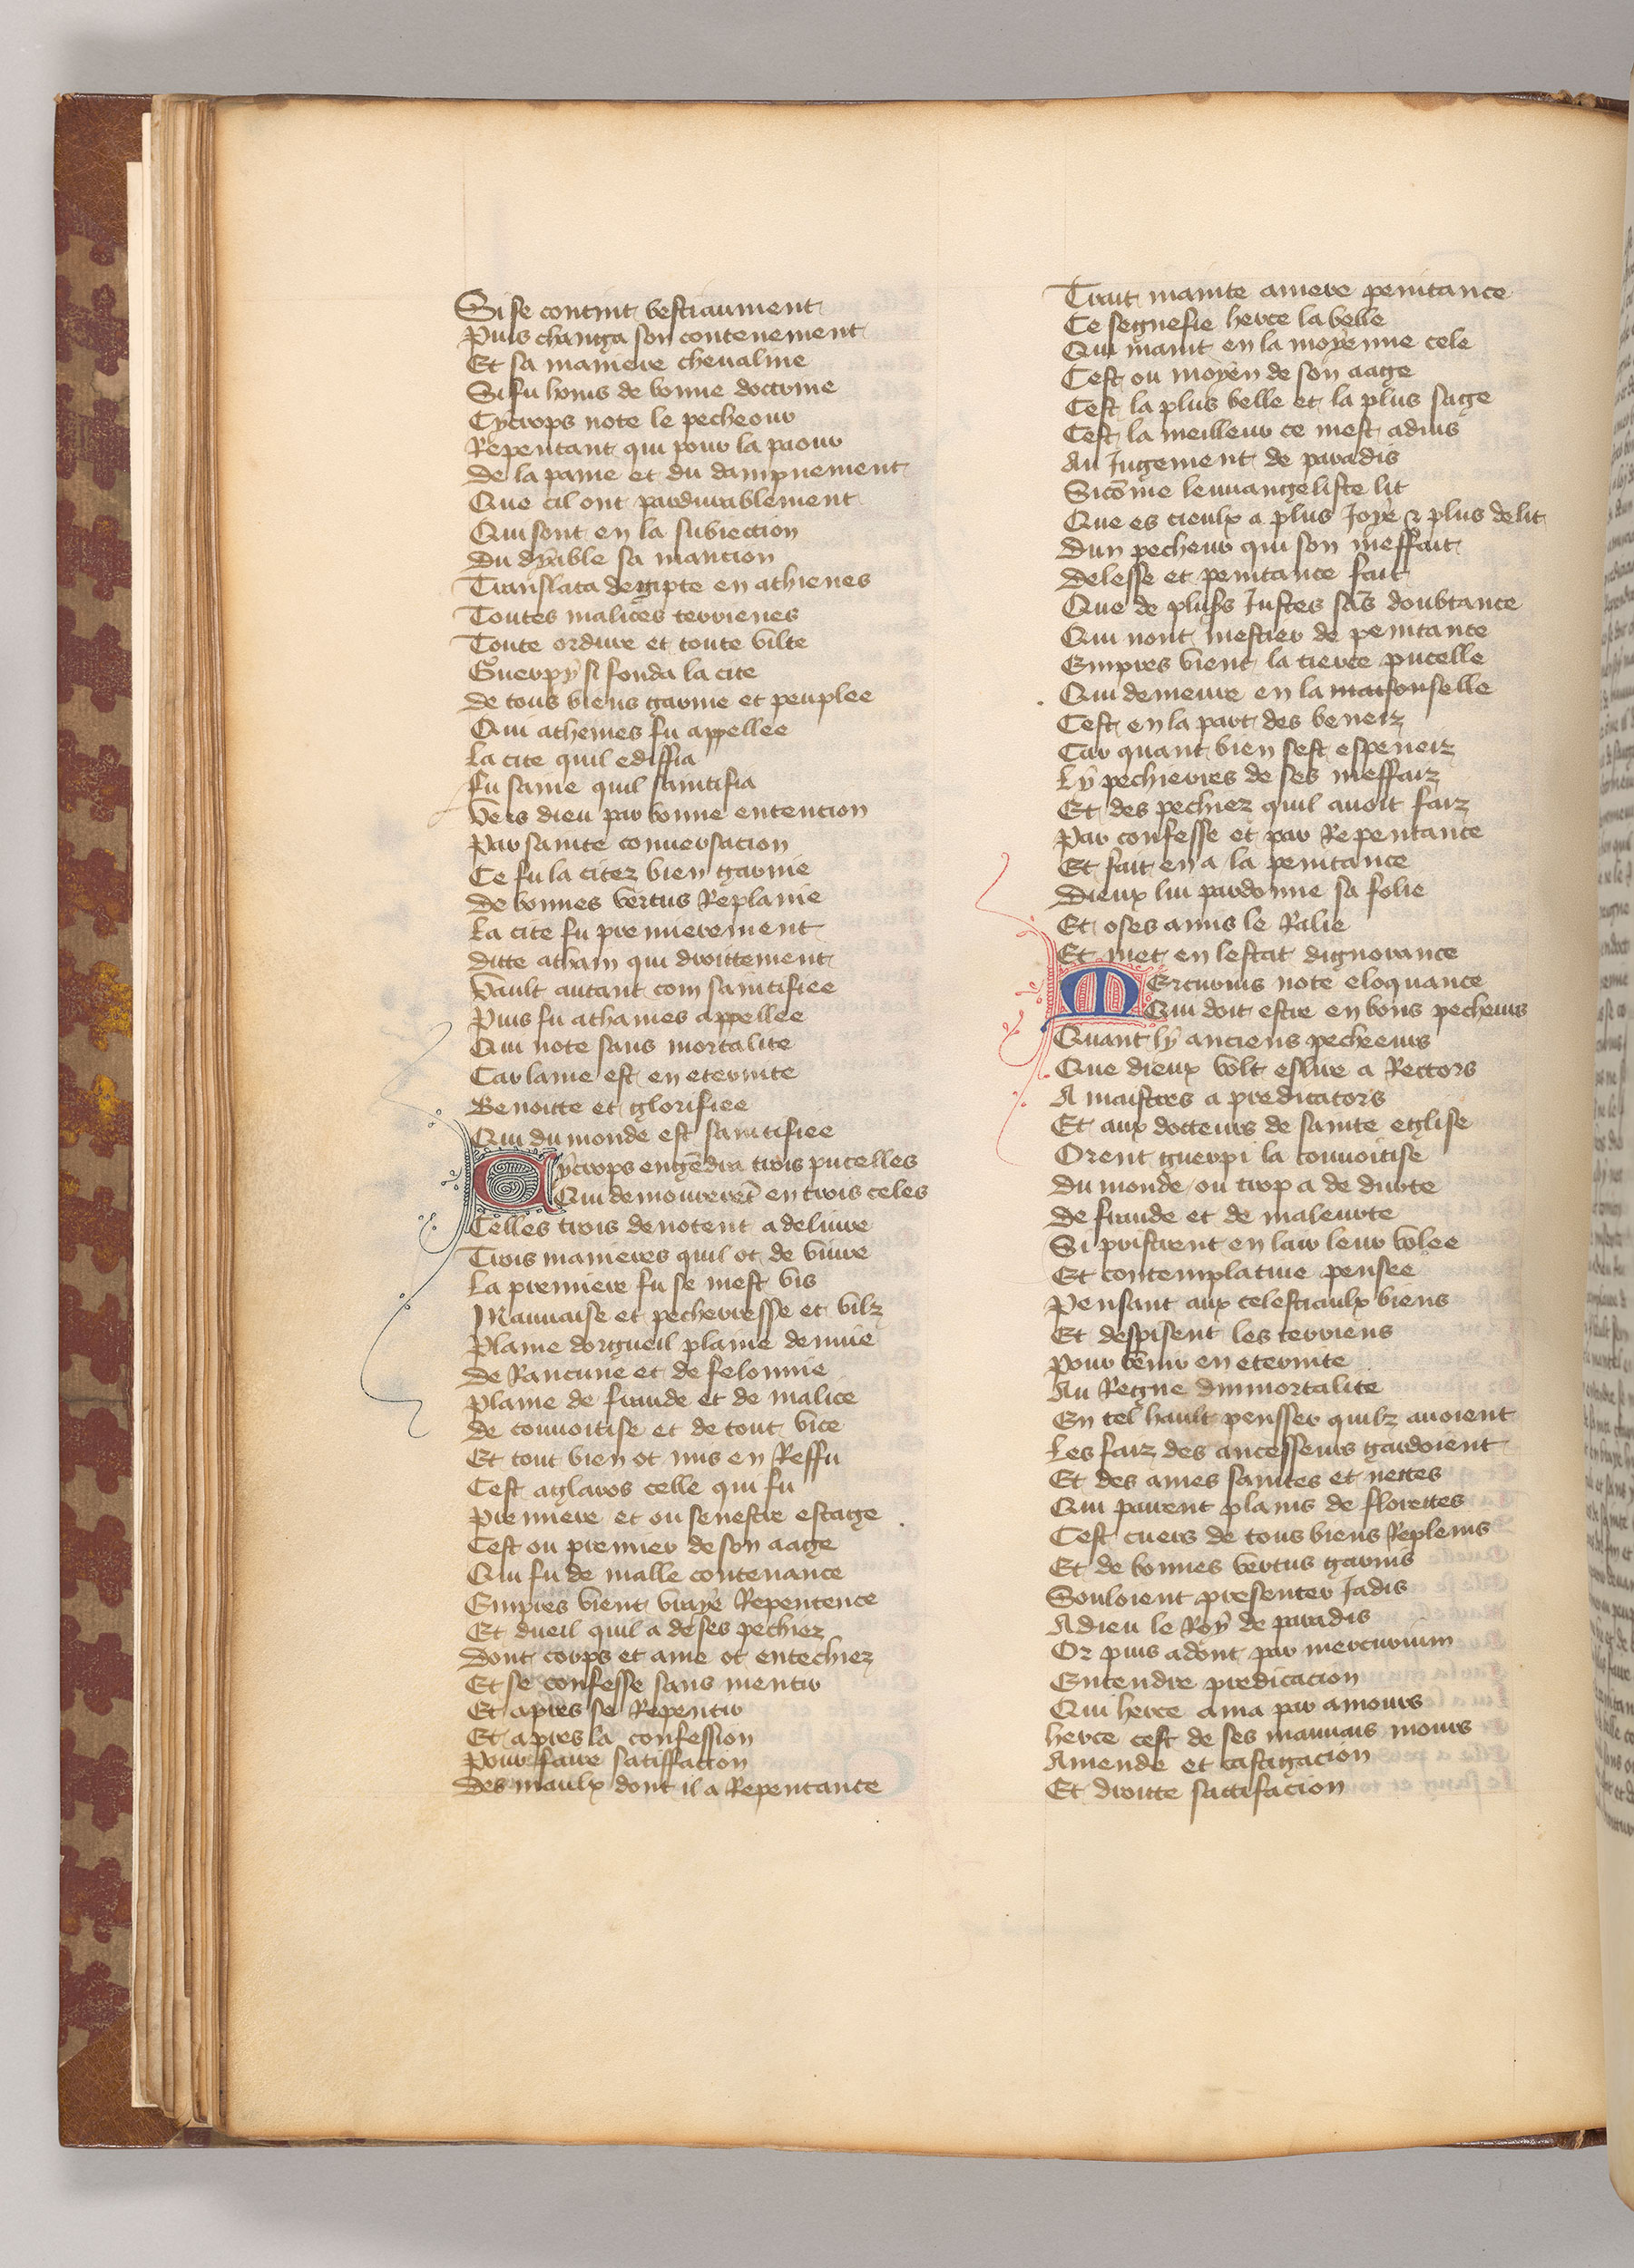 Si se contint bestiaument
Puis changa son contenement
Et sa maniere chevaline
Si fu homs de bonne doctrine
Cycrops note le pecheour
Repentant qui pour la paour
De la paine et du dampnement
Que cil ont pardurablement
Qui sont en la subiection
Du dyable sa mancion
Translata degipte en athienes
Toutes malices terrienes
Toute ordure et toute vilte
Guerpy si fonda la cite
De tous biens garnie et peuplee
Qui athenies fu appellee
La cite quil ediffia
Fu saine quil saintifia
Vers dieu par bonne entencion
Par sainte conversacion
Ce fu la citez bien garnie
De bonnes vertus Replanie
La cite fu premierement
Ditte athain qui droittement
Vault autant com saintifiee
Puis fu athaines appellee
Qui note sans mortalite
Car lame est en eternite
Benoitte et glorifiee
Qui du monde est saintifiee
Cycrops engēdra trois pucelles
Qui demourerēt en trois celes
Celles trois denotent a delivre
Trois manieres quil ot de vivre
La premiere fu se mest vis
Mauvaise et pecherresse et vilz
Plaine dorgueil plaine denvie
De Rancune et de felonnie
Plaine de fraude et de malice
De convoitise et de tout vice
Et tout bien ot mis en Reffu
Cest aglaros celle qui fu
Premiere et ou senestre estage
Cest ou premier de son aage
Qui fu de malle contenance
Empres vient vraye Repentence
Et dueil quil a de ses pechiez
Dont corps et ame ot entechiez
Et se confesse sans mentir
Et apres se Repentir
Et apres la confession
Pour faire satiffacion
Des maulx dont il a Repentance
Trait mainte amere penitance
Ce segnefie herce la belle
Qui maint en la moyenne cele
Cest ou moyen de son aage
Cest la plus belle et la plus sage
Cest la meilleur ce mest advis
Au Jugement de paradis
Sicōme levvangeliste lit
Que es cieulx a plus Joye & plus delit
Dun pecheur qui son meffait
Delesse et penitance fait
Que de plusrs Justes sās doubtance
Qui nont mestier de penitance
Empres vient la tierce pucelle
Qui demeure en la maisonselle
Cest en la part des beneiz
Car quant bien sest espeneiz
Ly pechierres de ses meffaiz
Et des pechiez quil avoit faiz
Par confesse et par Repentance
Et fait en a la penitance
Dieux lui pardonne sa folie
Et o ses amis le Ralie
Et met en lestat dignorance
Mercurius note eloquance
Qui doit estre en bons pecheurs
Quant ly anciens pecheurs
Que dieux volt eslire a Rectors
A maistres a predicators
Et aux docteurs de sainte eglise
Orent guerpi la convoitise
Du monde ou trop a de durte
De fraude et de maleurte
Si pristrent en lair leur volee
Et contemplative pensee
Pensant aux celestiaulx biens
Et despisent les terriens
Pour venir en eternite
Au Regne dinmortalite
En tel hault pensser quilz avoient
Les faiz des ancesseurs gardoient
Et des ames saintes et nettes
Qui paurent plains de florettes
Cest cuers de tous biens Replenis
Et de bonnes vertus garnis
Souloient presenter Jadis
A dieu le Roy de paradis
Or puis adont par mercurium
Entendre predicacion
Qui herce ama par amours
herce cest de ses mauvais mours
Amende et castigacion
Et droitte sattifacion